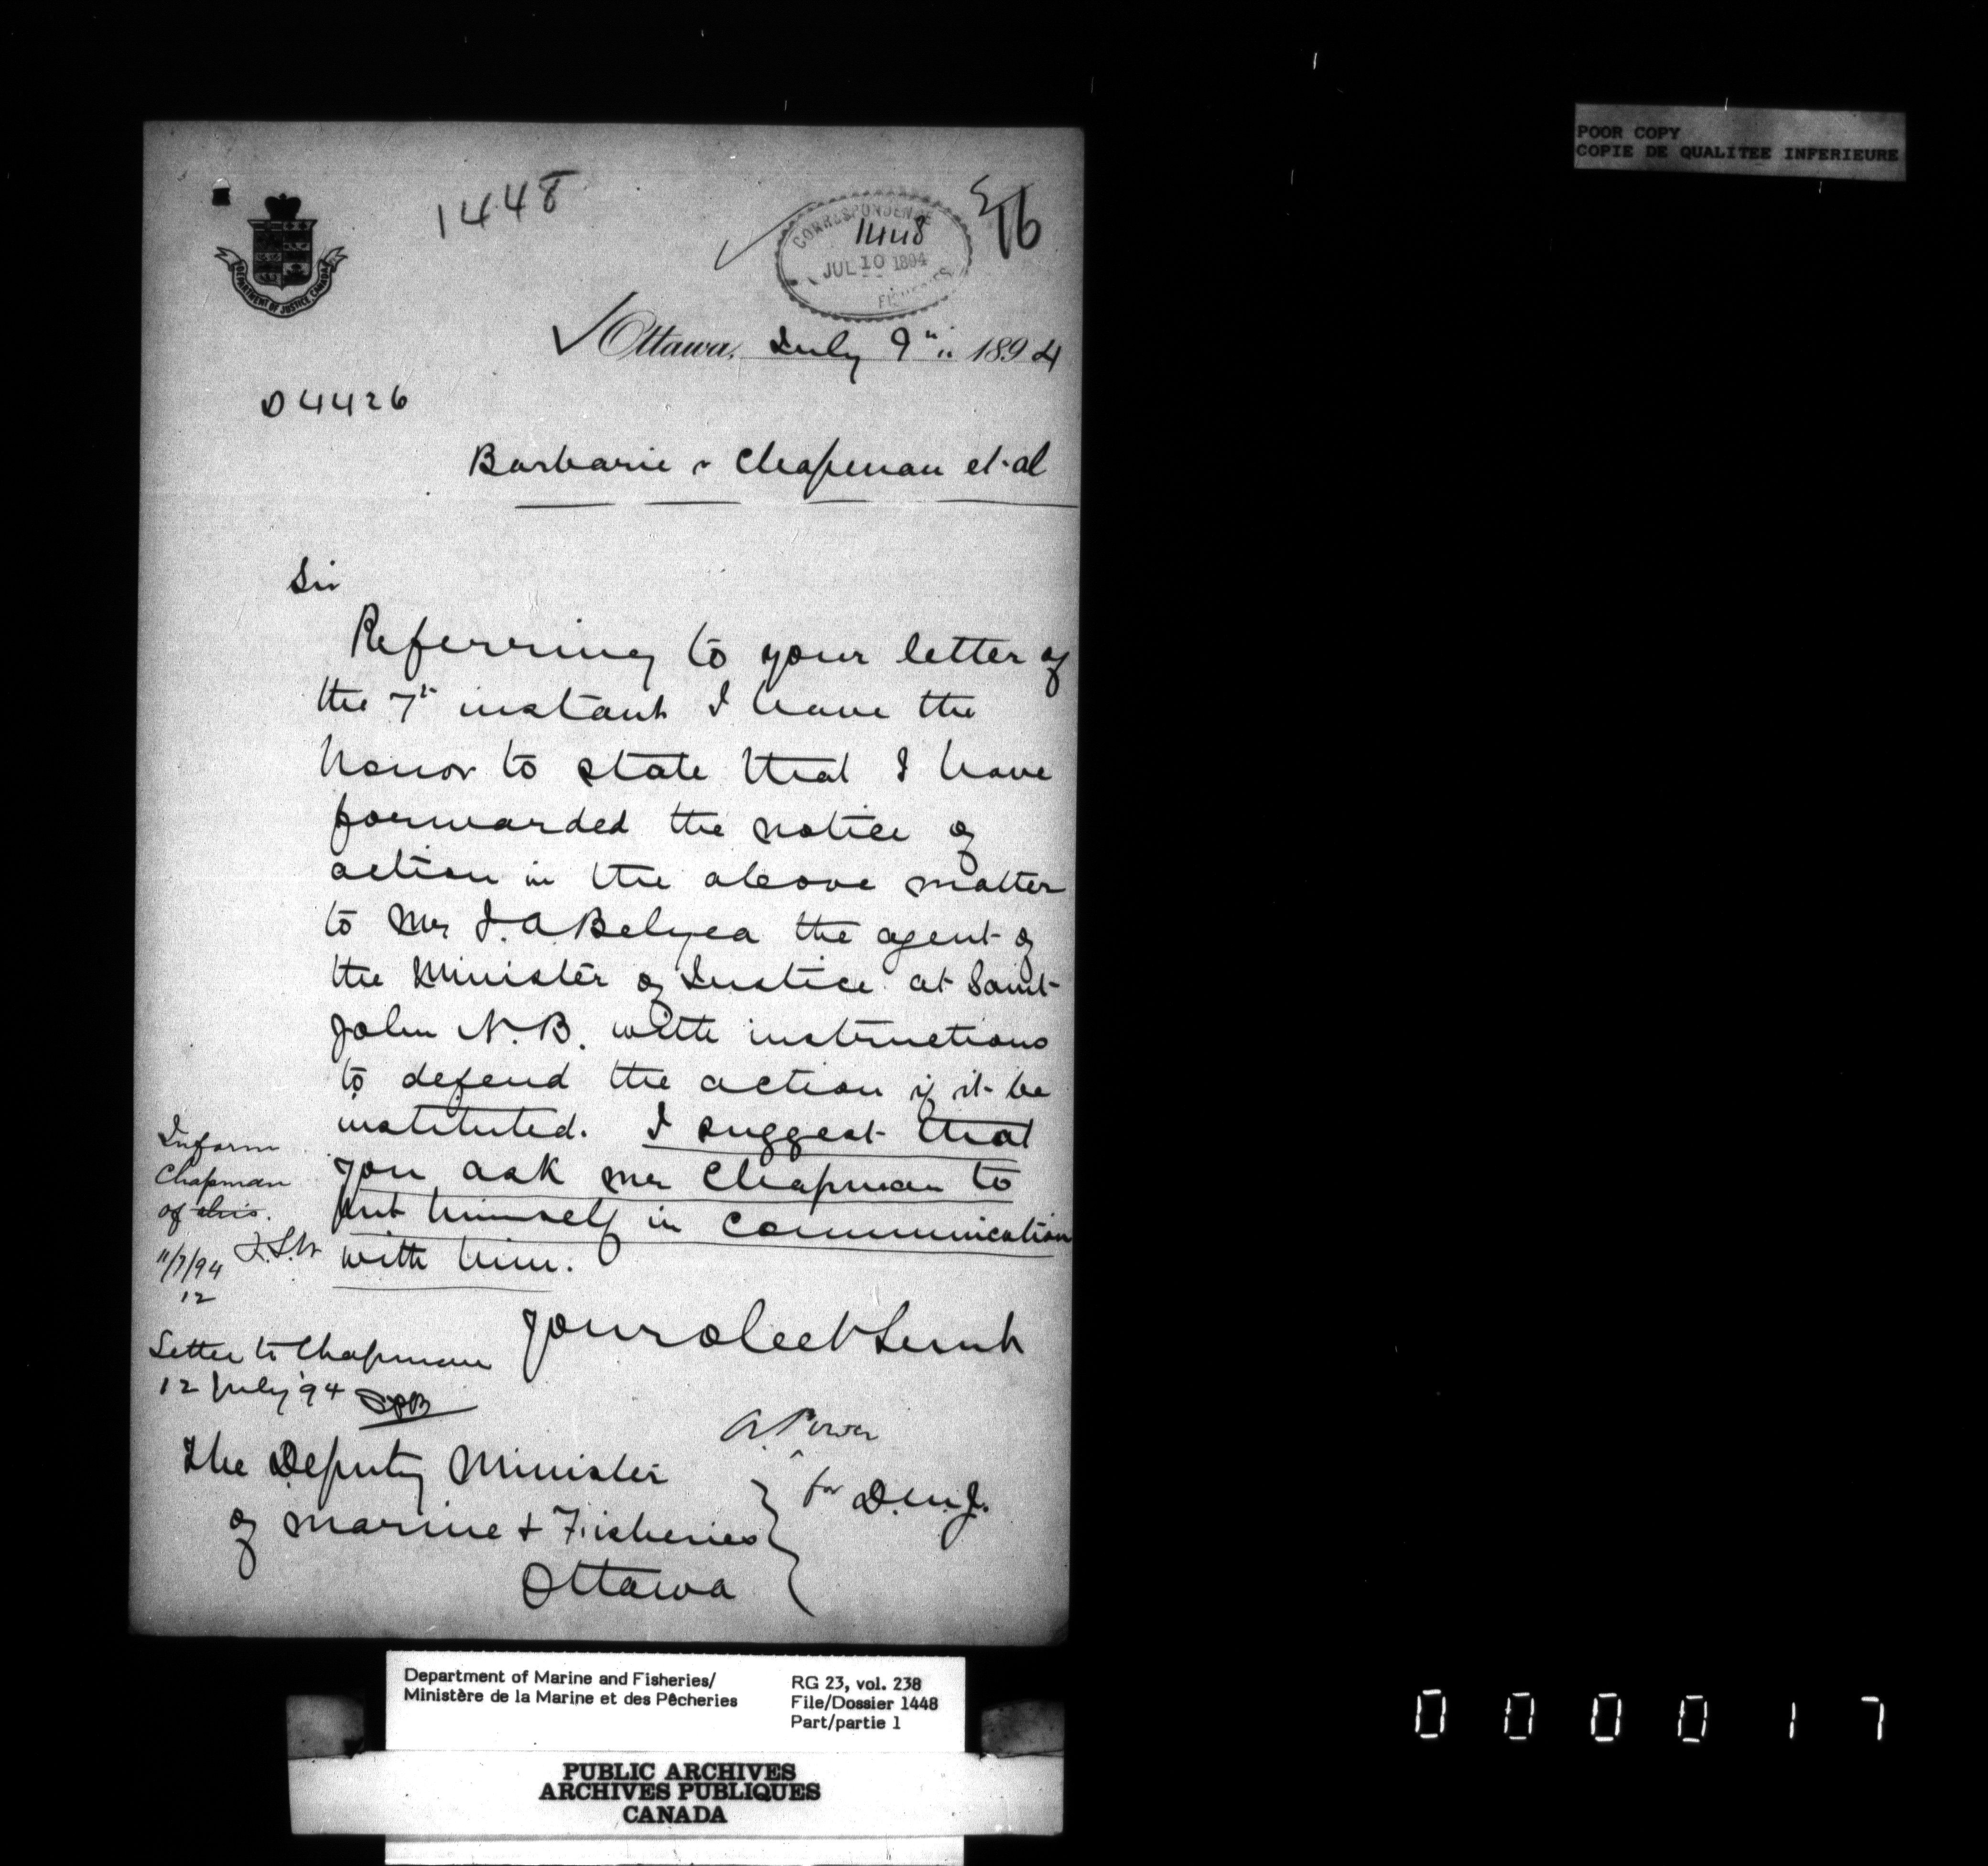 POOR COPY
COPIE DE QUALITEE INFERIEURE
1448
CORRESPONDENCE
1448
JUL 10 1894
FISHERIES
76
DEPARTMENT OF JUSTICE, CANADA
Ottawa, July 9th 1894
D 4426
Barbarie v Chapman et al
Sir
Referring to your letter of
the 7th instant I have the
honor to state that I have
forwarded the notice of
action in the above matter
to Mr J. A Belyea the agent of
the Minister of Justice at Saint
John N.B. with instructions
to defend the action if it be
instituted. I suggest that
you ask Mr Chapman to
put himself in communication
with him.
Inform
Chapman
of this.
11/7/94
12
Letter to Chapman
12 July '94
Your obedt Servt
A. Power
for D.M.J.
The Deputy Minister
of Marine & Fisheries
Ottawa
Department of Marine and Fisheries/
Ministère de la Marine et des Pêcheries
RG 23, vol. 238
File/Dossier 1448
Part/partie 1
PUBLIC ARCHIVES
ARCHIVES PUBLIQUES
CANADA
000017